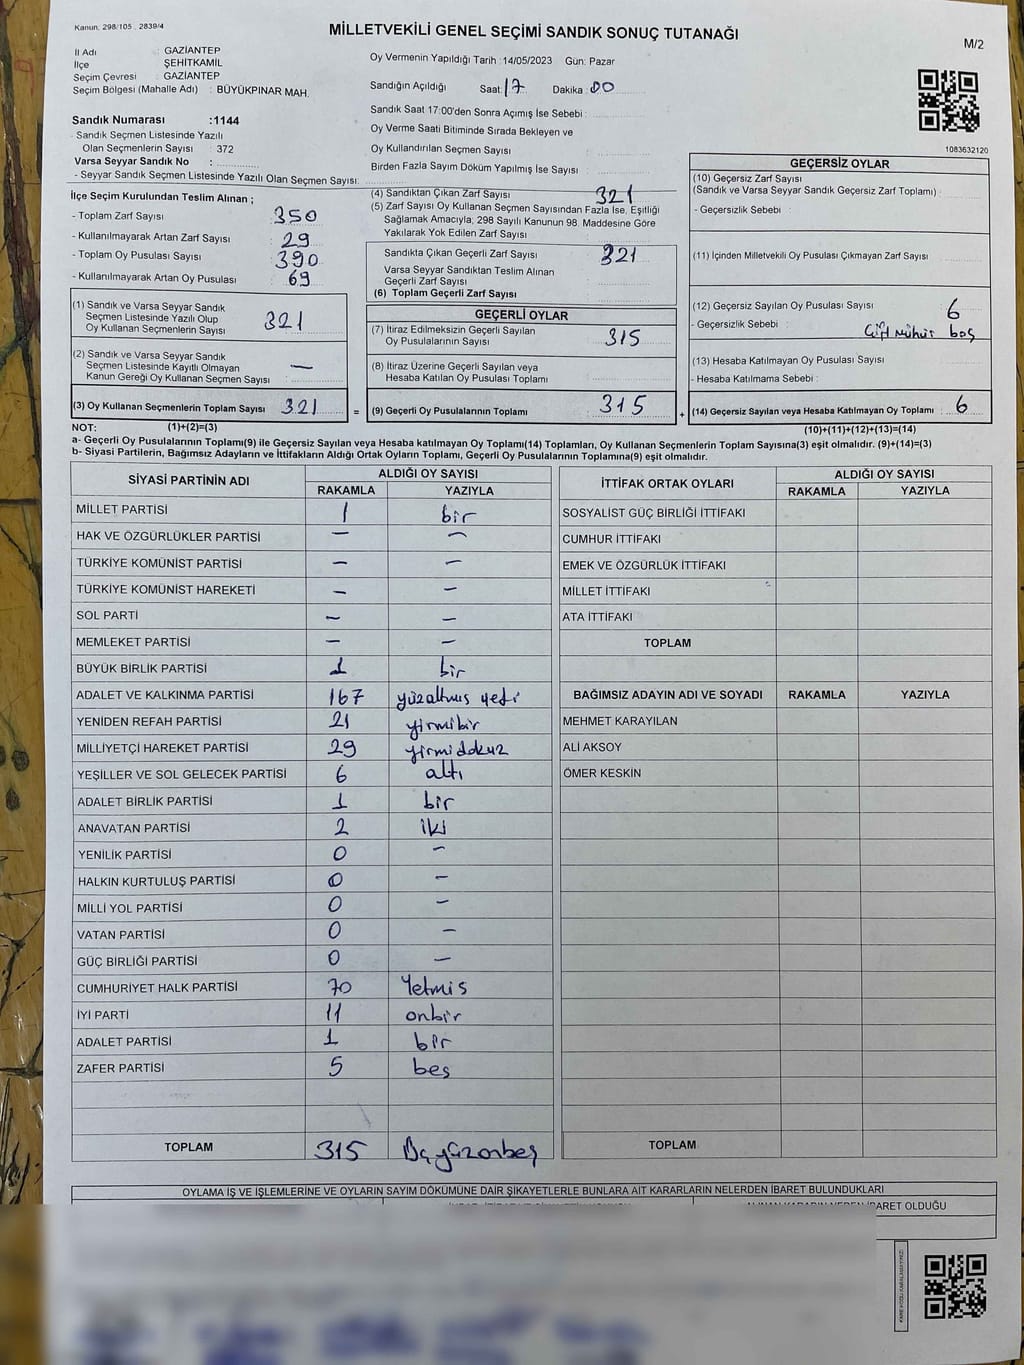 Kanun: 298/105 . 2839/4
MİLLETVEKİLİ GENEL SEÇİMİ SANDIK SONUÇ TUTANAĞI
M/2
İl Adı : GAZİANTEP
İlçe : ŞEHİTKAMİL
Seçim Çevresi : GAZİANTEP
Seçim Bölgesi (Mahalle Adı) : BÜYÜKPINAR MAH.
Sandık Numarası :1144
- Sandık Seçmen Listesinde Yazılı
Olan Seçmenlerin Sayısı : 372
Varsa Seyyar Sandık No :
- Seyyar Sandık Seçmen Listesinde Yazılı Olan Seçmen Sayısı:
Oy Vermenin Yapıldığı Tarih :14/05/2023 Gün: Pazar
Sandığın Açıldığı Saat: 17 Dakika : 00
Sandık Saat 17:00'den Sonra Açımış İse Sebebi :
Oy Verme Saati Bitiminde Sırada Bekleyen ve
Oy Kullandırılan Seçmen Sayısı :
Birden Fazla Sayım Döküm Yapılmış İse Sayısı :
1083632120
İlçe Seçim Kurulundan Teslim Alınan ;
- Toplam Zarf Sayısı : 350
- Kullanılmayarak Artan Zarf Sayısı : 29
- Toplam Oy Pusulası Sayısı : 390
- Kullanılmayarak Artan Oy Pusulası : 69
(1) Sandık ve Varsa Seyyar Sandık
Seçmen Listesinde Yazılı Olup
Oy Kullanan Seçmenlerin Sayısı : 321
(2) Sandık ve Varsa Seyyar Sandık
Seçmen Listesinde Kayıtlı Olmayan
Kanun Gereği Oy Kullanan Seçmen Sayısı : —
(3) Oy Kullanan Seçmenlerin Toplam Sayısı : 321 =
(4) Sandıktan Çıkan Zarf Sayısı : 321
(5) Zarf Sayısı Oy Kullanan Seçmen Sayısından Fazla İse, Eşitliği
Sağlamak Amacıyla; 298 Sayılı Kanunun 98. Maddesine Göre
Yakılarak Yok Edilen Zarf Sayısı :
Sandıkta Çıkan Geçerli Zarf Sayısı : 321
Varsa Seyyar Sandıktan Teslim Alınan
Geçerli Zarf Sayısı :
(6) Toplam Geçerli Zarf Sayısı :
GEÇERLİ OYLAR
(7) İtiraz Edilmeksizin Geçerli Sayılan
Oy Pusulalarının Sayısı : 315
(8) İtiraz Üzerine Geçerli Sayılan veya
Hesaba Katılan Oy Pusulası Toplamı :
(9) Geçerli Oy Pusulalarının Toplamı : 315 +
GEÇERSİZ OYLAR
(10) Geçersiz Zarf Sayısı
(Sandık ve Varsa Seyyar Sandık Geçersiz Zarf Toplamı) :
- Geçersizlik Sebebi :
(11) İçinden Milletvekili Oy Pusulası Çıkmayan Zarf Sayısı :
(12) Geçersiz Sayılan Oy Pusulası Sayısı : 6
- Geçersizlik Sebebi : Çift mühür boş
(13) Hesaba Katılmayan Oy Pusulası Sayısı :
- Hesaba Katılmama Sebebi :
(14) Geçersiz Sayılan veya Hesaba Katılmayan Oy Toplamı : 6
NOT: (1)+(2)=(3) (10)+(11)+(12)+(13)=(14)
a- Geçerli Oy Pusulalarının Toplamı(9) ile Geçersiz Sayılan veya Hesaba katılmayan Oy Toplamı(14) Toplamları, Oy Kullanan Seçmenlerin Toplam Sayısına(3) eşit olmalıdır. (9)+(14)=(3)
b- Siyasi Partilerin, Bağımsız Adayların ve İttifakların Aldığı Ortak Oyların Toplamı, Geçerli Oy Pusulalarının Toplamına(9) eşit olmalıdır.
SİYASİ PARTİNİN ADI ALDIĞI OY SAYISI
RAKAMLA YAZIYLA
MİLLET PARTİSİ 1 bir
HAK VE ÖZGÜRLÜKLER PARTİSİ — —
TÜRKİYE KOMÜNİST PARTİSİ — —
TÜRKİYE KOMÜNİST HAREKETİ — —
SOL PARTİ — —
MEMLEKET PARTİSİ — —
BÜYÜK BİRLİK PARTİSİ 1 bir
ADALET VE KALKINMA PARTİSİ 167 yüzaltmış yedi
YENİDEN REFAH PARTİSİ 21 yirmibir
MİLLİYETÇİ HAREKET PARTİSİ 29 yirmidokuz
YEŞİLLER VE SOL GELECEK PARTİSİ 6 altı
ADALET BİRLİK PARTİSİ 1 bir
ANAVATAN PARTİSİ 2 iki
YENİLİK PARTİSİ 0 —
HALKIN KURTULUŞ PARTİSİ 0 —
MİLLİ YOL PARTİSİ 0 —
VATAN PARTİSİ 0 —
GÜÇ BİRLİĞİ PARTİSİ 0 —
CUMHURİYET HALK PARTİSİ 70 Yetmis
İYİ PARTİ 11 onbir
ADALET PARTİSİ 1 bir
ZAFER PARTİSİ 5 beş
TOPLAM 315 Üçyüzonbeş
İTTİFAK ORTAK OYLARI ALDIĞI OY SAYISI
RAKAMLA YAZIYLA
SOSYALİST GÜÇ BİRLİĞİ İTTİFAKI
CUMHUR İTTİFAKI
EMEK VE ÖZGÜRLÜK İTTİFAKI
MİLLET İTTİFAKI
ATA İTTİFAKI
TOPLAM
BAĞIMSIZ ADAYIN ADI VE SOYADI RAKAMLA YAZIYLA
MEHMET KARAYILAN
ALİ AKSOY
ÖMER KESKİN
TOPLAM
OYLAMA İŞ VE İŞLEMLERİNE VE OYLARIN SAYIM DÖKÜMÜNE DAİR ŞİKAYETLERLE BUNLARA AİT KARARLARIN NELERDEN İBARET BULUNDUKLARI
ALINAN KARARIN NEDEN İBARET OLDUĞU